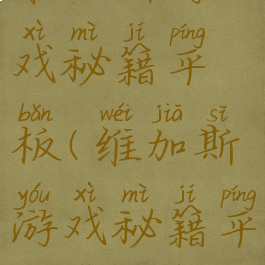 xì mì jí píng
戏秘籍平
bǎn wéi jiā sī
板(维加斯
yóu xì mì jí píng
游戏秘籍平